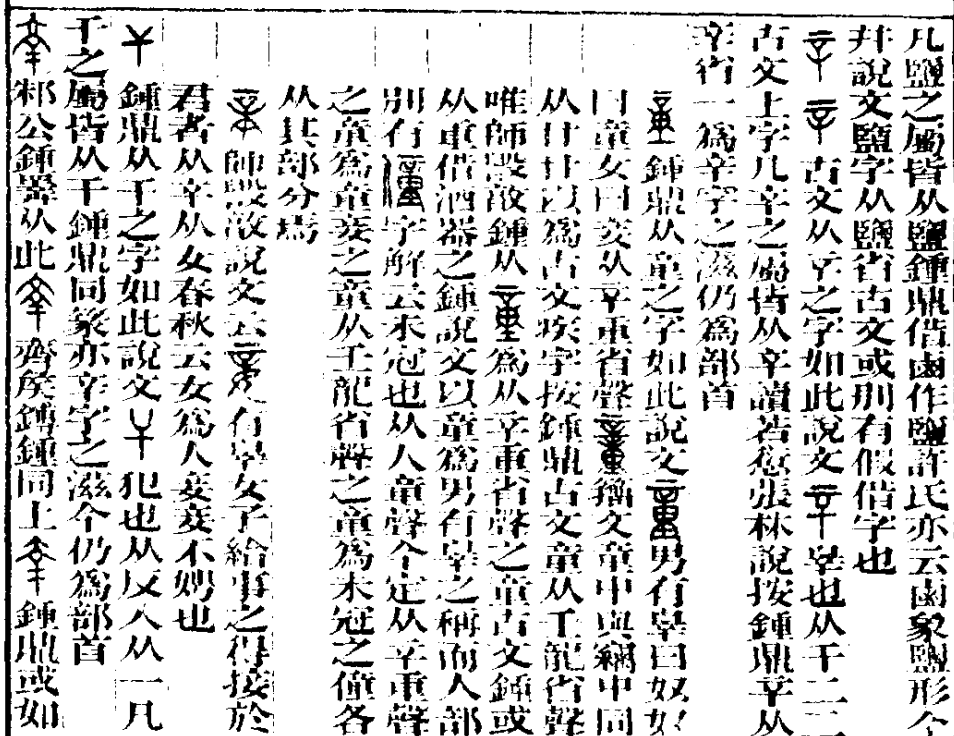 凡鹽之屬皆从鹽鍾鼎借鹵作鹽許氏亦云鹵象鹽形今
井說文鹽字从鹽省古文或别有假借字也
古文从䇂之字如此說文䇂辠也从干二二
古文上字凡䇂之屬皆从䇂讀若愆張林說按鍾鼎䇂从
辛省一爲辛字之滋仍爲部首
鍾鼎从童之字如此說文童男有辠曰奴奴
曰童女曰妾从䇂重省聲籒文童中與竊中同
从廿廿以爲古文疾字按鍾鼎古文童从䇂龍省聲
唯師㲃敔鍾从爲从䇂重省聲之童古文鍾或
从重借酒器之鍾說文以童爲男有辠之稱而人部
别有僮字解云未冠也从人童聲今定从䇂重聲
之童爲童妾之童从壬龍省聲之童爲未冠之僮各
从其部分焉
師㲃敔說文云妾有辠女子給事之得接於
君者从䇂从女春秋云女爲人妾妾不娉也
鍾鼎从干之字如此說文干犯也从反入从一凡
干之屬皆从干鍾鼎同象亦辛字之滋今仍爲部首
邾公鍾嚳从此齊矦鎛鍾同上鍾鼎或如